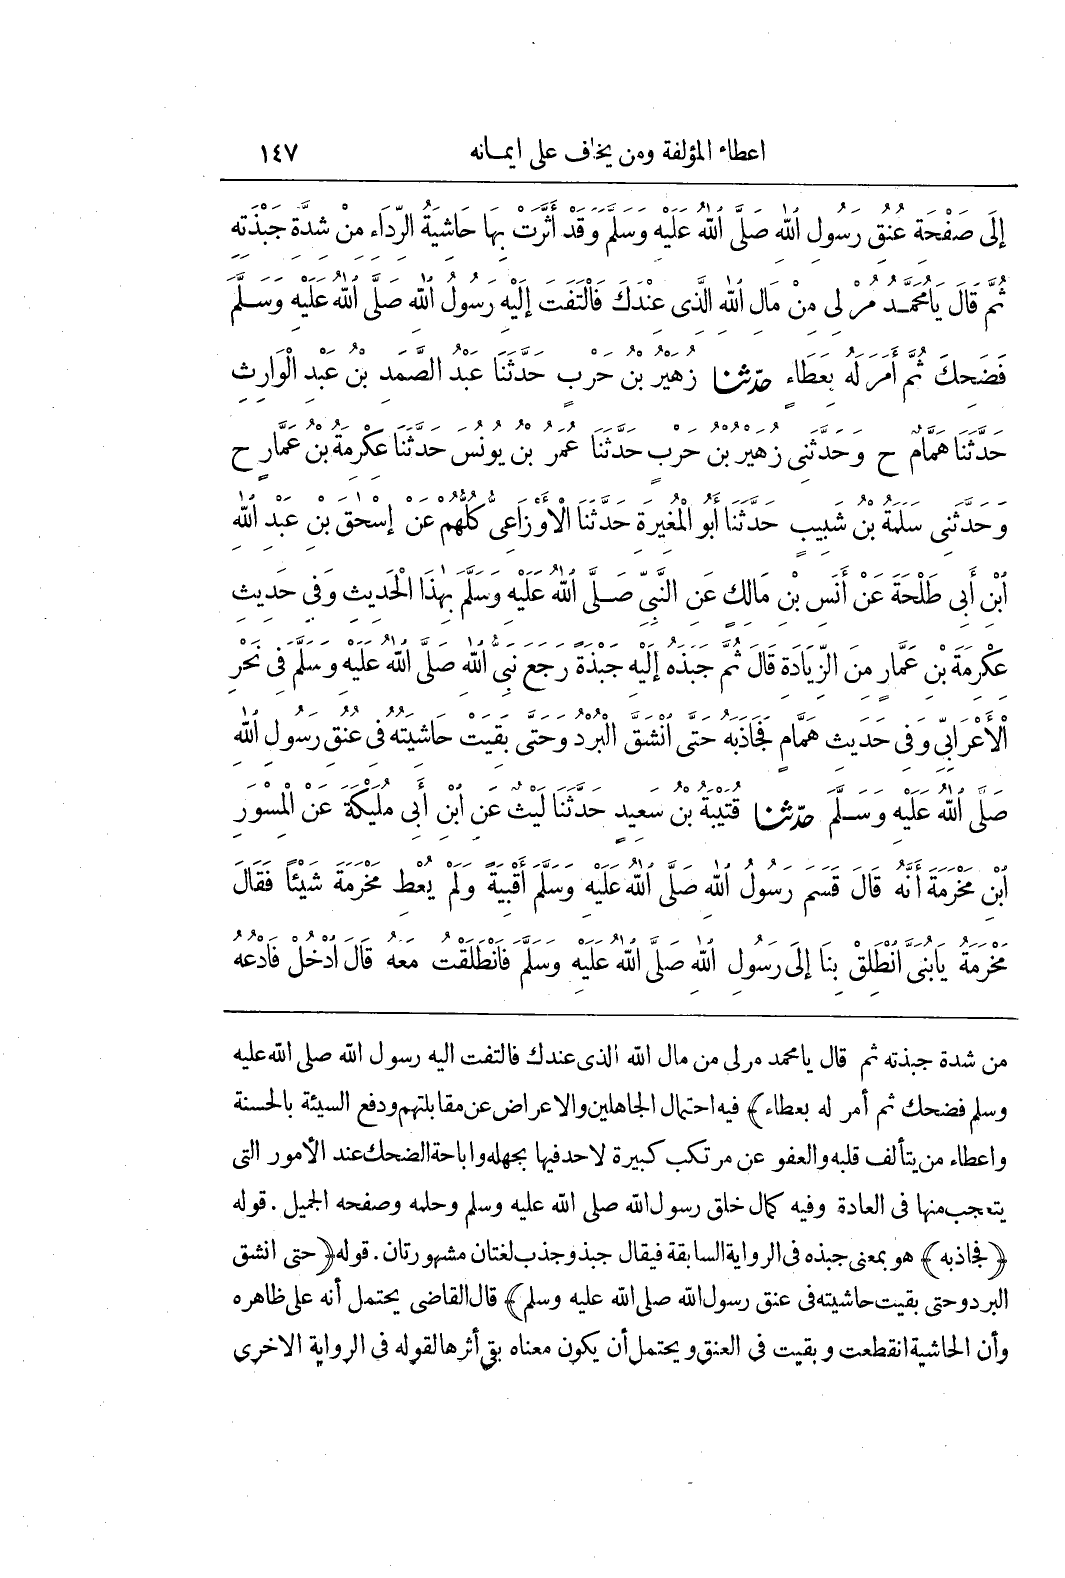 اعطاء المؤلفة ومن يخاف على ايمانه ١٤٧
إِلَى صَفْحَةِ عُنُقِ رَسُولِ اللهِ صَلَّى اللهُ عَلَيْهِ وَسَلَّمَ وَقَدْ أَثَّرَتْ بِهَا حَاشِيَةُ الرِّدَاءِ مِنْ شِدَّةِ جَبْذَتِهِ
ثُمَّ قَالَ يَا مُحَمَّدُ مُرْ لِى مِنْ مَالِ اللهِ الَّذِى عِنْدَكَ فَالْتَفَتَ إِلَيْهِ رَسُولُ اللهِ صَلَّى اللهُ عَلَيْهِ وَسَلَّمَ
فَضَحِكَ ثُمَّ أَمَرَ لَهُ بِعَطَاءٍ حدّثنا زُهَيْرُ بْنُ حَرْبٍ حَدَّثَنَا عَبْدُ الصَّمَدِ بْنُ عَبْدِ الْوَارِثِ
حَدَّثَنَا هَمَّامٌ ح وَحَدَّثَنِى زُهَيْرُ بْنُ حَرْبٍ حَدَّثَنَا عُمَرُ بْنُ يُونُسَ حَدَّثَنَا عِكْرِمَةُ بْنُ عَمَّارٍ ح
وَحَدَّثَنِى سَلَمَةُ بْنُ شَبِيبٍ حَدَّثَنَا أَبُو الْمُغِيرَةِ حَدَّثَنَا الْأَوْزَاعِىُّ كُلُّهُمْ عَنْ إِسْحٰقَ بْنِ عَبْدِ اللهِ
ابْنِ أَبِى طَلْحَةَ عَنْ أَنَسِ بْنِ مَالِكٍ عَنِ النَّبِىِّ صَلَّى اللهُ عَلَيْهِ وَسَلَّمَ بِهٰذَا الْحَدِيثِ وَفِى حَدِيثِ
عِكْرِمَةَ بْنِ عَمَّارٍ مِنَ الزِّيَادَةِ قَالَ ثُمَّ جَبَذَهُ إِلَيْهِ جَبْذَةً رَجَعَ نَبِىُّ اللهِ صَلَّى اللهُ عَلَيْهِ وَسَلَّمَ فِى نَحْرِ
الْأَعْرَابِىِّ وَفِى حَدِيثِ هَمَّامٍ فَجَاذَبَهُ حَتَّى انْشَقَّ الْبُرْدُ وَحَتَّى بَقِيَتْ حَاشِيَتُهُ فِى عُنُقِ رَسُولِ اللهِ
صَلَّى اللهُ عَلَيْهِ وَسَلَّمَ حدّثنا قُتَيْبَةُ بْنُ سَعِيدٍ حَدَّثَنَا لَيْثٌ عَنِ ابْنِ أَبِى مُلَيْكَةَ عَنِ الْمِسْوَرِ
ابْنِ مَخْرَمَةَ أَنَّهُ قَالَ قَسَمَ رَسُولُ اللهِ صَلَّى اللهُ عَلَيْهِ وَسَلَّمَ أَقْبِيَةً وَلَمْ يُعْطِ مَخْرَمَةَ شَيْئًا فَقَالَ
مَخْرَمَةُ يَابُنَىَّ انْطَلِقْ بِنَا إِلَى رَسُولِ اللهِ صَلَّى اللهُ عَلَيْهِ وَسَلَّمَ فَانْطَلَقْتُ مَعَهُ قَالَ ادْخُلْ فَادْعُهُ
من شدة جبذته ثم قال يا محمد مر لى من مال الله الذى عندك فالتفت اليه رسول الله صلى الله عليه
وسلم فضحك ثم أمر له بعطاء﴾ فيه احتمال الجاهلين والاعراض عن مقابلتهم ودفع السيئة بالحسنة
واعطاء من يتألف قلبه والعفو عن مرتكب كبيرة لا حد فيها بجهله واباحة الضحك عند الأمور التى
يتعجب منها فى العادة وفيه كمال خلق رسول الله صلى الله عليه وسلم وحلمه وصفحه الجميل . قوله
﴿فجاذبه﴾ هو بمعنى جبذه فى الرواية السابقة فيقال جبذ وجذب لغتان مشهورتان . قوله ﴿حتى انشق
البرد وحتى بقيت حاشيته فى عنق رسول الله صلى الله عليه وسلم﴾ قال القاضى يحتمل أنه على ظاهره
وأن الحاشية انقطعت وبقيت فى العنق ويحتمل أن يكون معناه بقى أثرها لقوله فى الرواية الاخرى